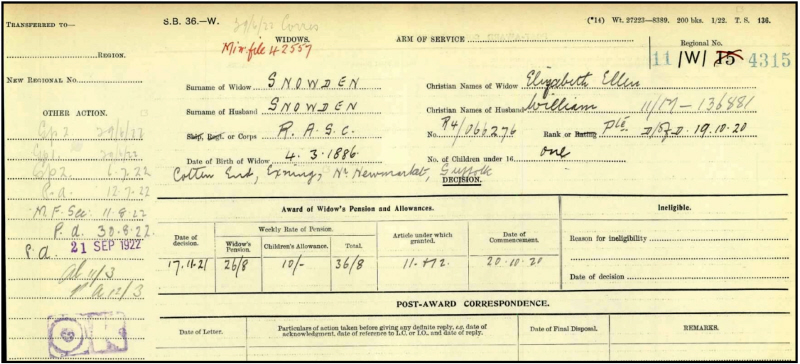 TRANSFERRED TO—
REGION.
NEW REGIONAL No.
OTHER ACTION.
Gp2 29/6/22
6.7.22
P.a. 12.7.22
M.F. Sec: 11.8.22
P.a. 30.8.22
P.a. 21 SEP 1922
11/3
12/3
S.B. 36.—W. 29/6/22 Corres
Min. file 42557
WIDOWS.
ARM OF SERVICE
(*14) Wt. 27223—8389. 200 bks. 1/22. T. S. 136.
Regional No.
11 /W/ 15 4315
Surname of Widow SNOWDEN
Christian Names of Widow Elizabeth Ellen
Surname of Husband SNOWDEN
Christian Names of Husband William 11/M—136881
Ship, Regt. or Corps R.A.S.C.
No. R4/066276 Rank or Rating Pte D/of D. 19.10.20
Date of Birth of Widow 4.3.1886
No. of Children under 16 one
Cotton End, Exning, Nr Newmarket, Suffolk
DECISION.
Award of Widow's Pension and Allowances.
Ineligible.
Date of decision.
Weekly Rate of Pension.
Widow's Pension.
Children's Allowance.
Total.
Article under which granted.
Date of Commencement.
17.11.21 26/8 10/- 36/8 11.+12. 20.10.20
Reason for ineligibility
Date of decision
POST-AWARD CORRESPONDENCE.
Date of Letter.
Particulars of action taken before giving any definite reply, e.g. date of acknowledgment, date of reference to L.C. or I.O., and date of reply.
Date of Final Disposal.
REMARKS.